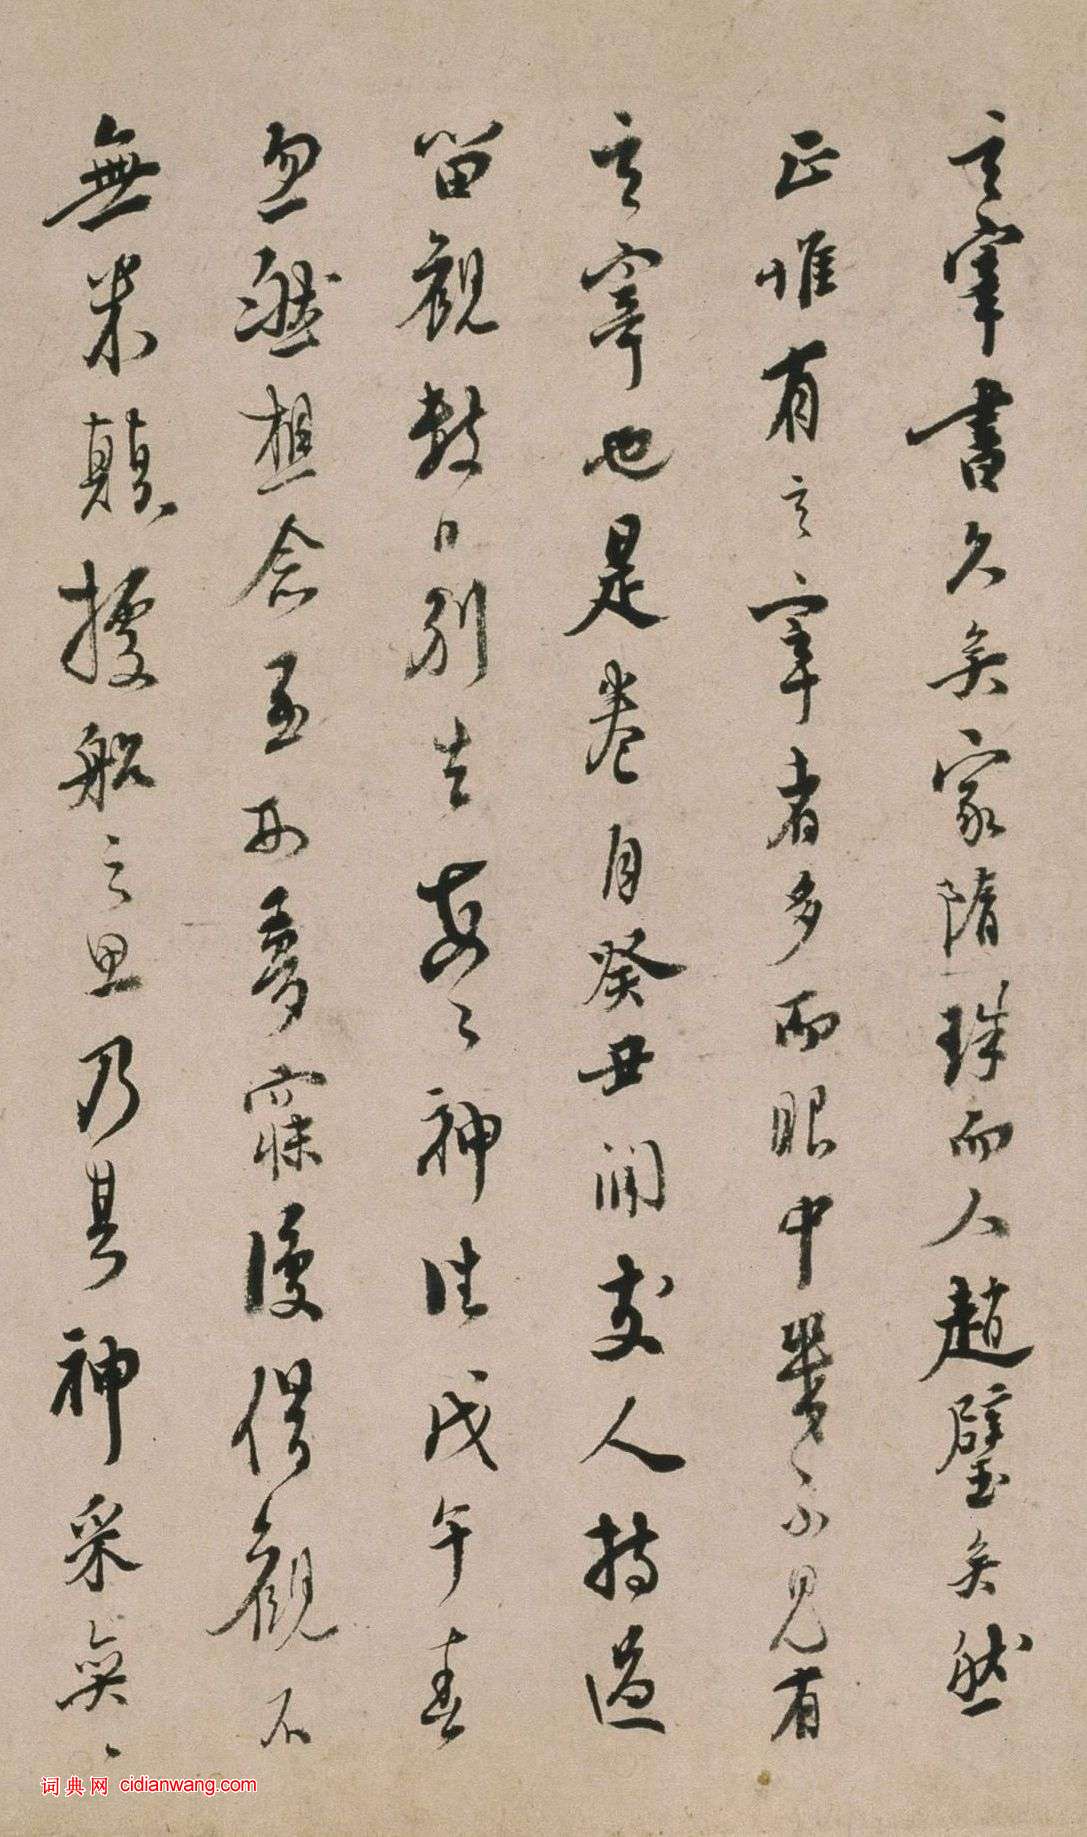 玄宰書久矣家隋珠而人趙璧矣然
正惟有玄宰者多而眼中幾不見有
玄宰也是卷自癸丑聞友人持過
留觀數日別去每每神往戊午春
忽然想念至形夢寐復借觀不
無米顛據船之思乃其神采奕奕
词典网 cidianwang.com